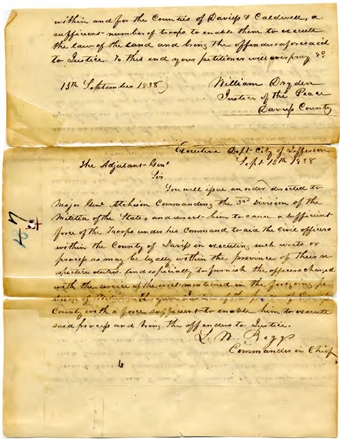 within and for the Counties of Daviess & Caldwell, a
sufficient number of troops to enable them to execute
the law of the land and bring the offenders aforesaid
to Justice. To this end your petitioner will ever pray &c
15th September 1838
William Dryden
Justice of the Peace
Daviess County
Executive Dept City of Jefferson
Sept 15th 1838
The Adjutant Genl
Sir
You will issue an order directed to
Major Genl Atchison Commanding the 3rd Division of the
Militia of the State, and direct him to cause a sufficient
force of the Troops under his Command to aid the Civil officers
within the County of Daviess in executing such writs or
process as may be legally within the province of their
duties, and especially to furnish the officer charged
with the service of the writ
County with a force sufficient to enable him to execute
said process and bring the offenders to Justice.
L. W. Boggs
Commander in Chief